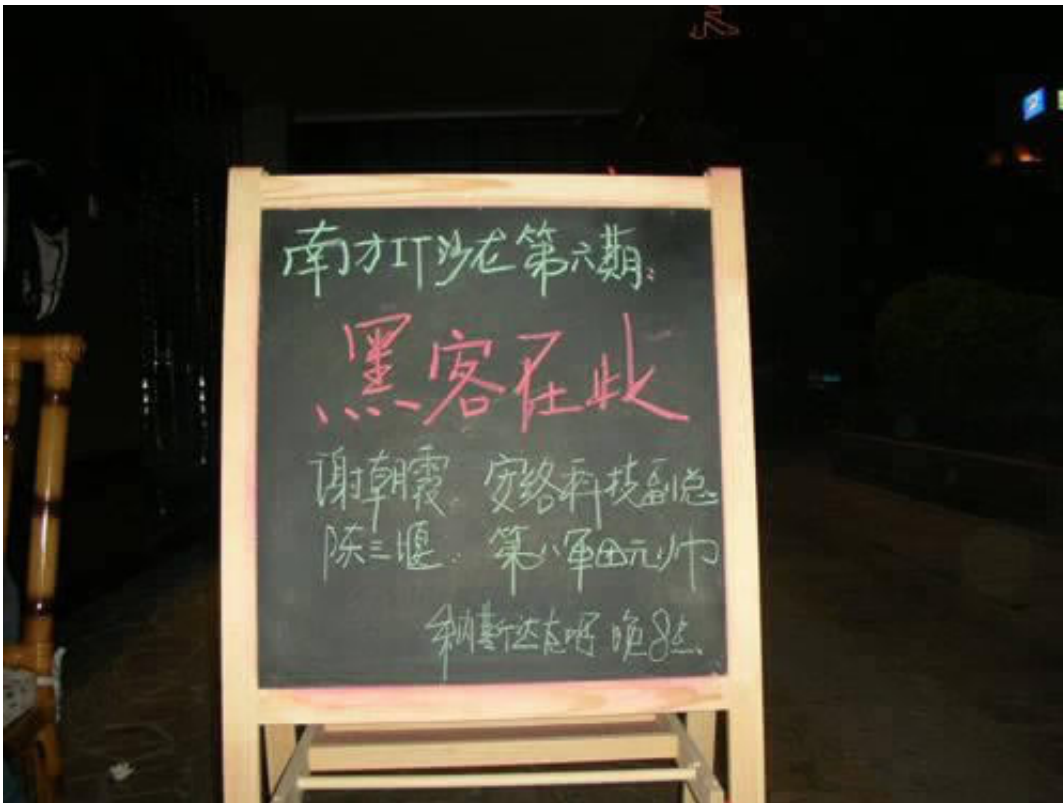 南方IT沙龙第六期:
黑客在此
谢朝霞 安络科技副总
陈三堰 第八军团元帅
斯达 晚8点